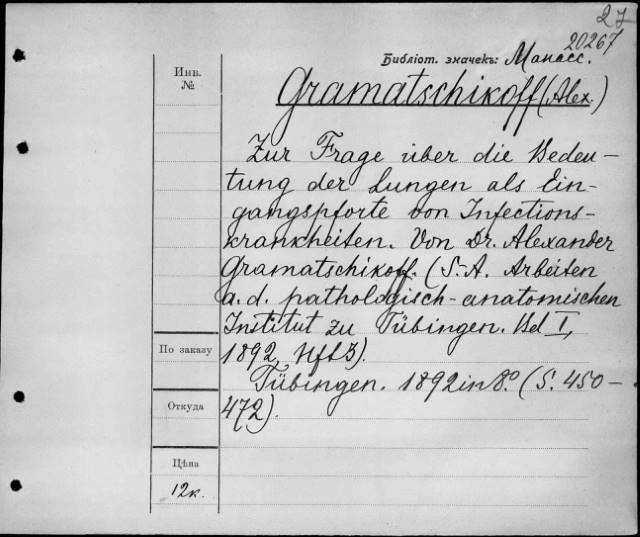 27
20267
Библіот. значекъ: Манасс.
Инв.
№
Gramatschikoff (Alex.)
Zur Frage über die Bedeu-
tung der Lungen als Ein-
gangspforte von Infections-
krankheiten. Von Dr. Alexander
Gramatschikoff. (S.-A. Arbeiten
a. d. pathologisch-anatomischen
Institut zu Tübingen. Bd I,
По заказу
1892, Hft 3).
Tübingen. 1892 in 8.º (S. 450-
Откуда
472).
Цѣна
12к.